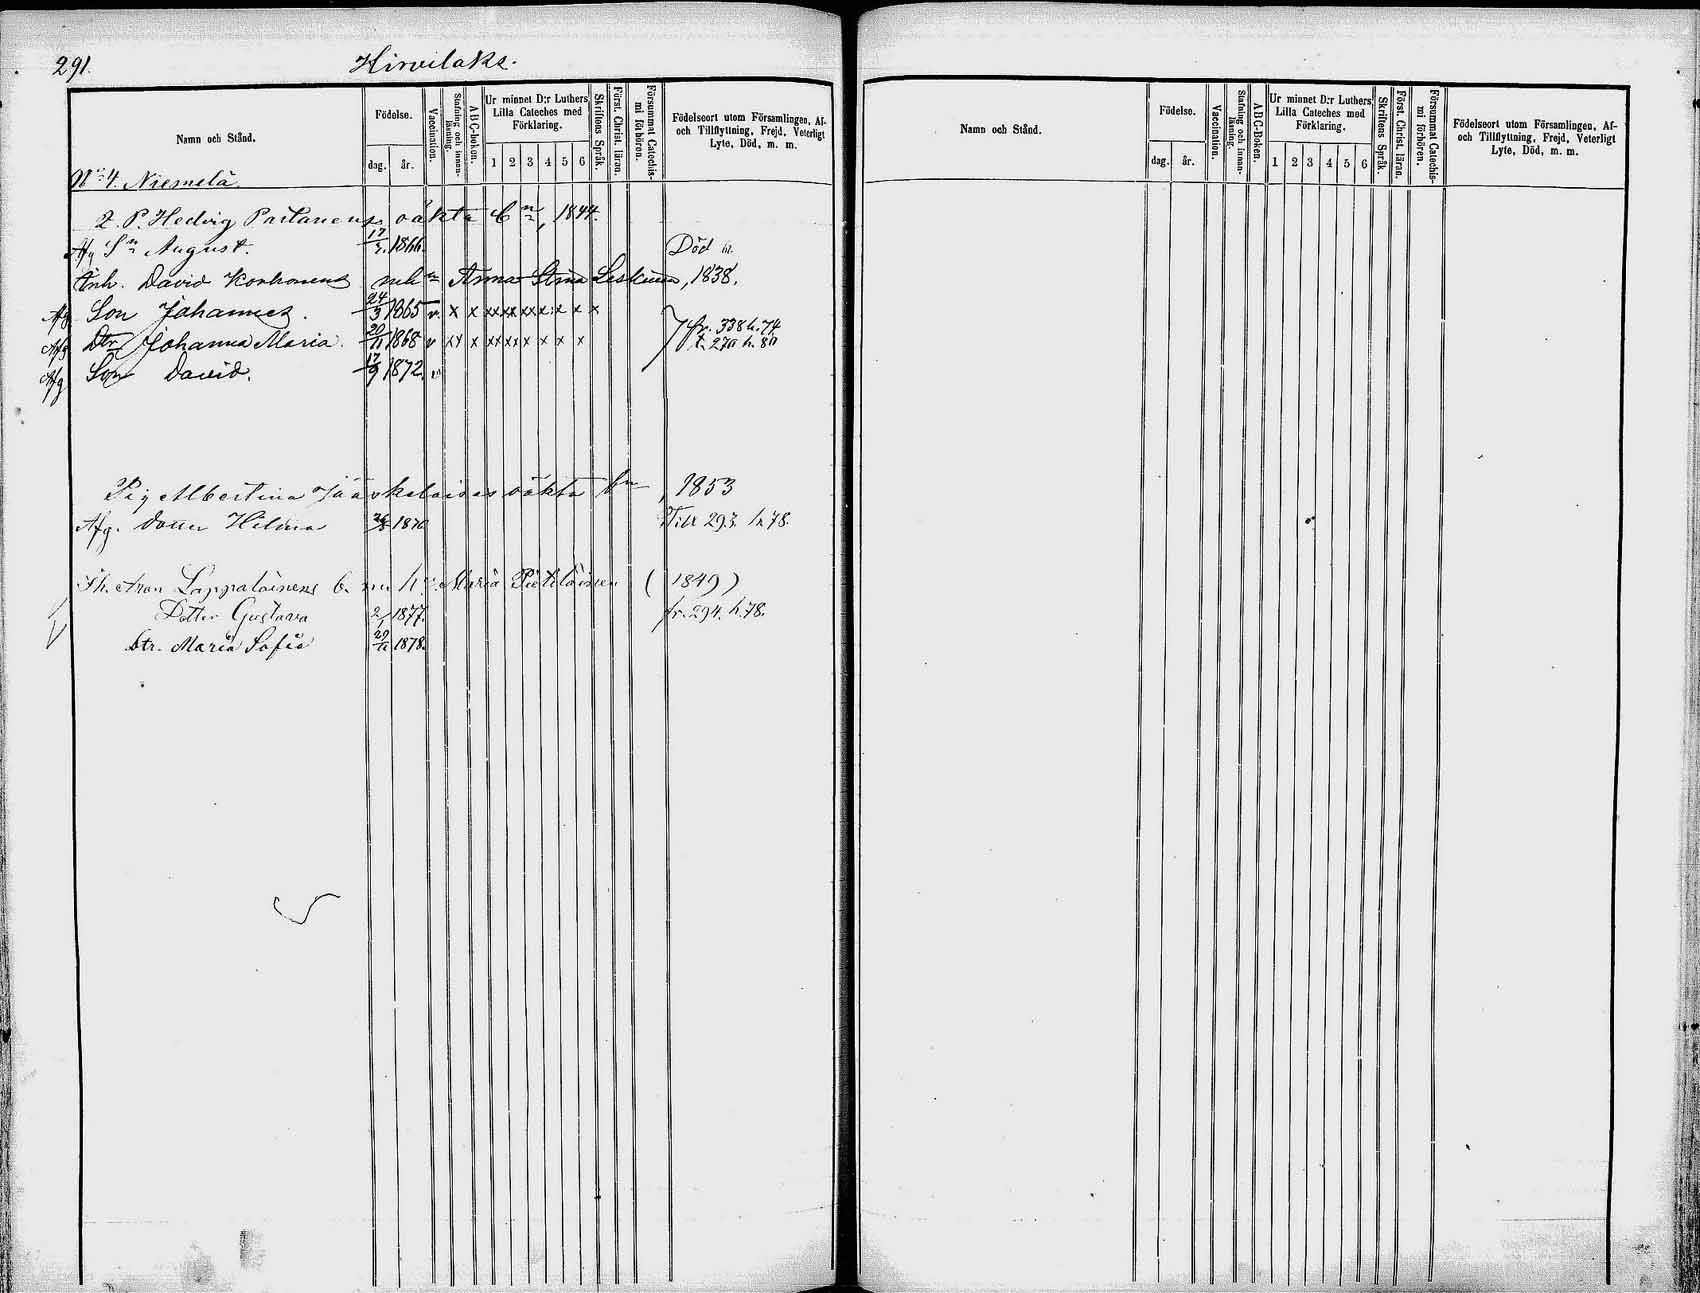 291.
Hirvilaks.
Namn och Stånd.
Födelse.
dag. år.
Vaccination.
Stafning och innanläsning.
ABC-boken.
Ur minnet D:r Luthers Lilla Cateches med Förklaring.
1 2 3 4 5 6
Skriftens Språk.
Först. Christ. läran.
Försummat Catechismi förhören.
Födelseort utom Församlingen, Af- och Tillflyttning, Frejd, Veterligt Lyte, Död, m. m.
No 4. Niemelä.
2. P. Hedvig Partanens oäkta bn, 1844.
Afg Sn August. 17/ 1866. Död
Inh. David Korhonens meh Anna Stina Leskinen, 1838.
Afg Son Johannes. 24/3 1865 v. x x xx xx xx x x x x
Afg Dtr Johanna Maria. 20/11 1868 v xx x xx xx x x x x fr. 338 h. 74
t. 270 h. 80
Afg Son David. 17/9 1872. v
Pig Albertina Jääskeläises oäkta bn, 1853
Afg. Dotter Hilma 1870 Till 293. h 78.
Ih. Aron Lappalainens b. m. h. Maria Pietiläinen (1849)
Dotter Gustava 2/1 1877. fr. 294. h. 78.
Dtr. Maria Sofia 29/11 1878.
Namn och Stånd.
Födelse.
dag. år.
Vaccination.
Stafning och innanläsning.
ABC-Boken.
Ur minnet D:r Luthers Lilla Cateches med Förklaring.
1 2 3 4 5 6
Skriftens Språk.
Först. Christ. läran.
Försummat Catechismi förhören.
Födelseort utom Församlingen, Af- och Tillflyttning, Frejd, Veterligt Lyte, Död, m. m.